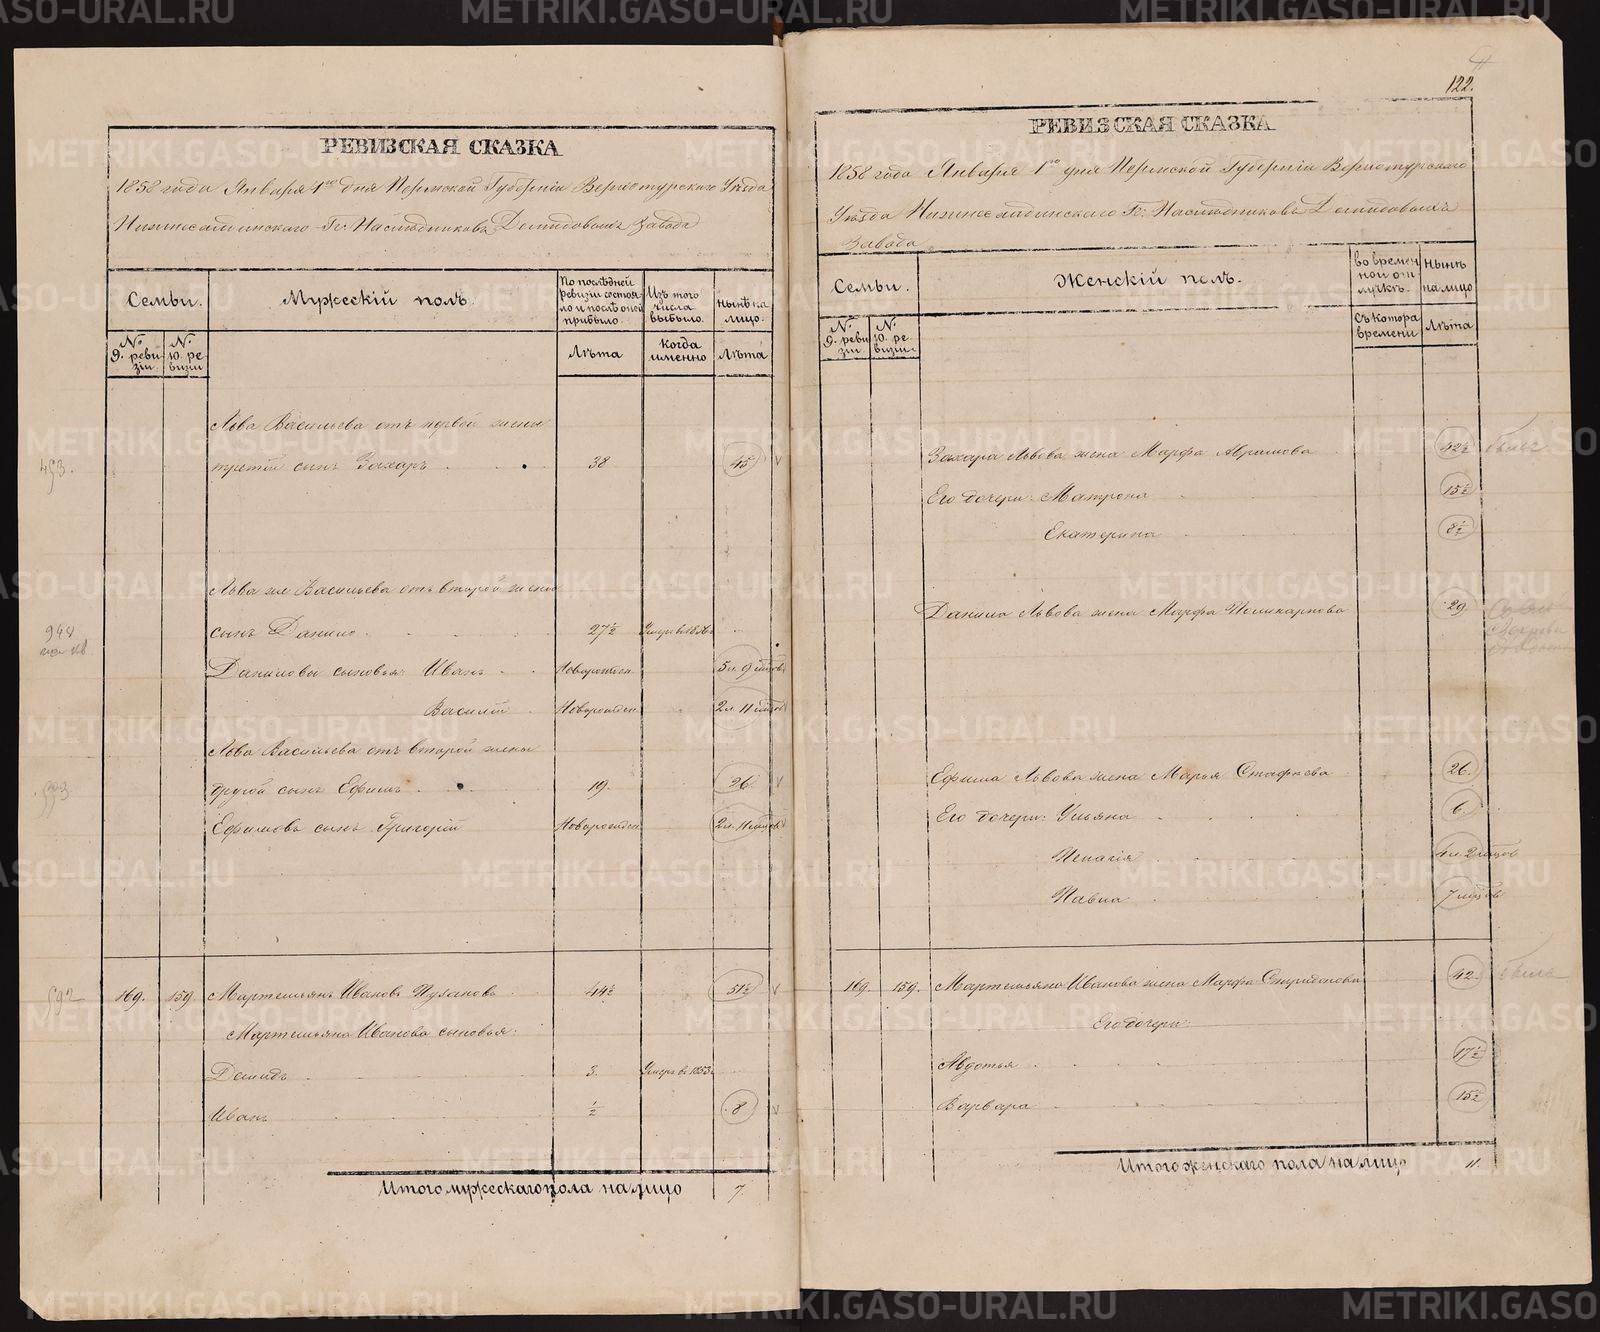 122.
РЕВИЗСКАЯ СКАЗКА
1858 года Января 1го дня Пермской Губерніи Верхотурскаго Уѣзда
Нижнесалдинскаго Гг. Наслѣдниковъ Демидовыхъ Завода
Семьи. Мужескій полъ. По послѣдней ревизіи состояло и послѣ оной прибыло. Изъ того числа выбыло. Нынѣ на лицо.
№ 9. ревизіи. № 10. ревизіи Лѣта Когда именно Лѣта
Льва Васильева отъ первой жены
453. третій сынъ Захаръ 38 45
Льва же Васильева отъ второй жены
948 сынъ Данило 27½ Умеръ въ 1856
Даниловы сыновья: Иванъ Новорожден 5 л. 9 мцовъ
Василій Новорожден 2 л. 11 мцов
Льва Васильева отъ второй жены
другой сынъ Ефимъ 19. 26.
Ефимовъ сынъ Григорій Новорожден 2 л. 11 мцовъ
592 169. 159 Мартемьянъ Ивановъ Пухановъ 44½ 51½
Мартемьяна Иванова сыновья:
Демидъ 3. Умеръ въ 1853
Иванъ ½ 8
Итого мужескаго пола на лицо 7.
РЕВИЗСКАЯ СКАЗКА
1858 года Января 1го дня Пермской Губерніи Верхотурскаго
Уѣзда Нижнесалдинскаго Гг. Наслѣдниковъ Демидовыхъ
Завода
Семьи. Женскій полъ. Во временной отлучкѣ. Нынѣ на лицо
№ 9. ревизіи № 10. ревизіи. Съ котора времени Лѣта
Захара Львова жена Марфа Абрамова 42½
Его дочери: Матрона 15½
Екатерина 8½
Данила Львова жена Марфа Поликарпова 29
Ефима Львова жена Марья Стафѣева 26.
Его дочери: Ульяна 6.
Пелагія 4 л. 2 мцов
Павла 7 мцовъ
169. 159. Мартемьяна Иванова жена Марфа Спиридонова 42.
Его дочери:
Авдотья 17½
Варвара 15½
Итого женскаго пола на лицо 11.
METRIKI.GASO-URAL.RU